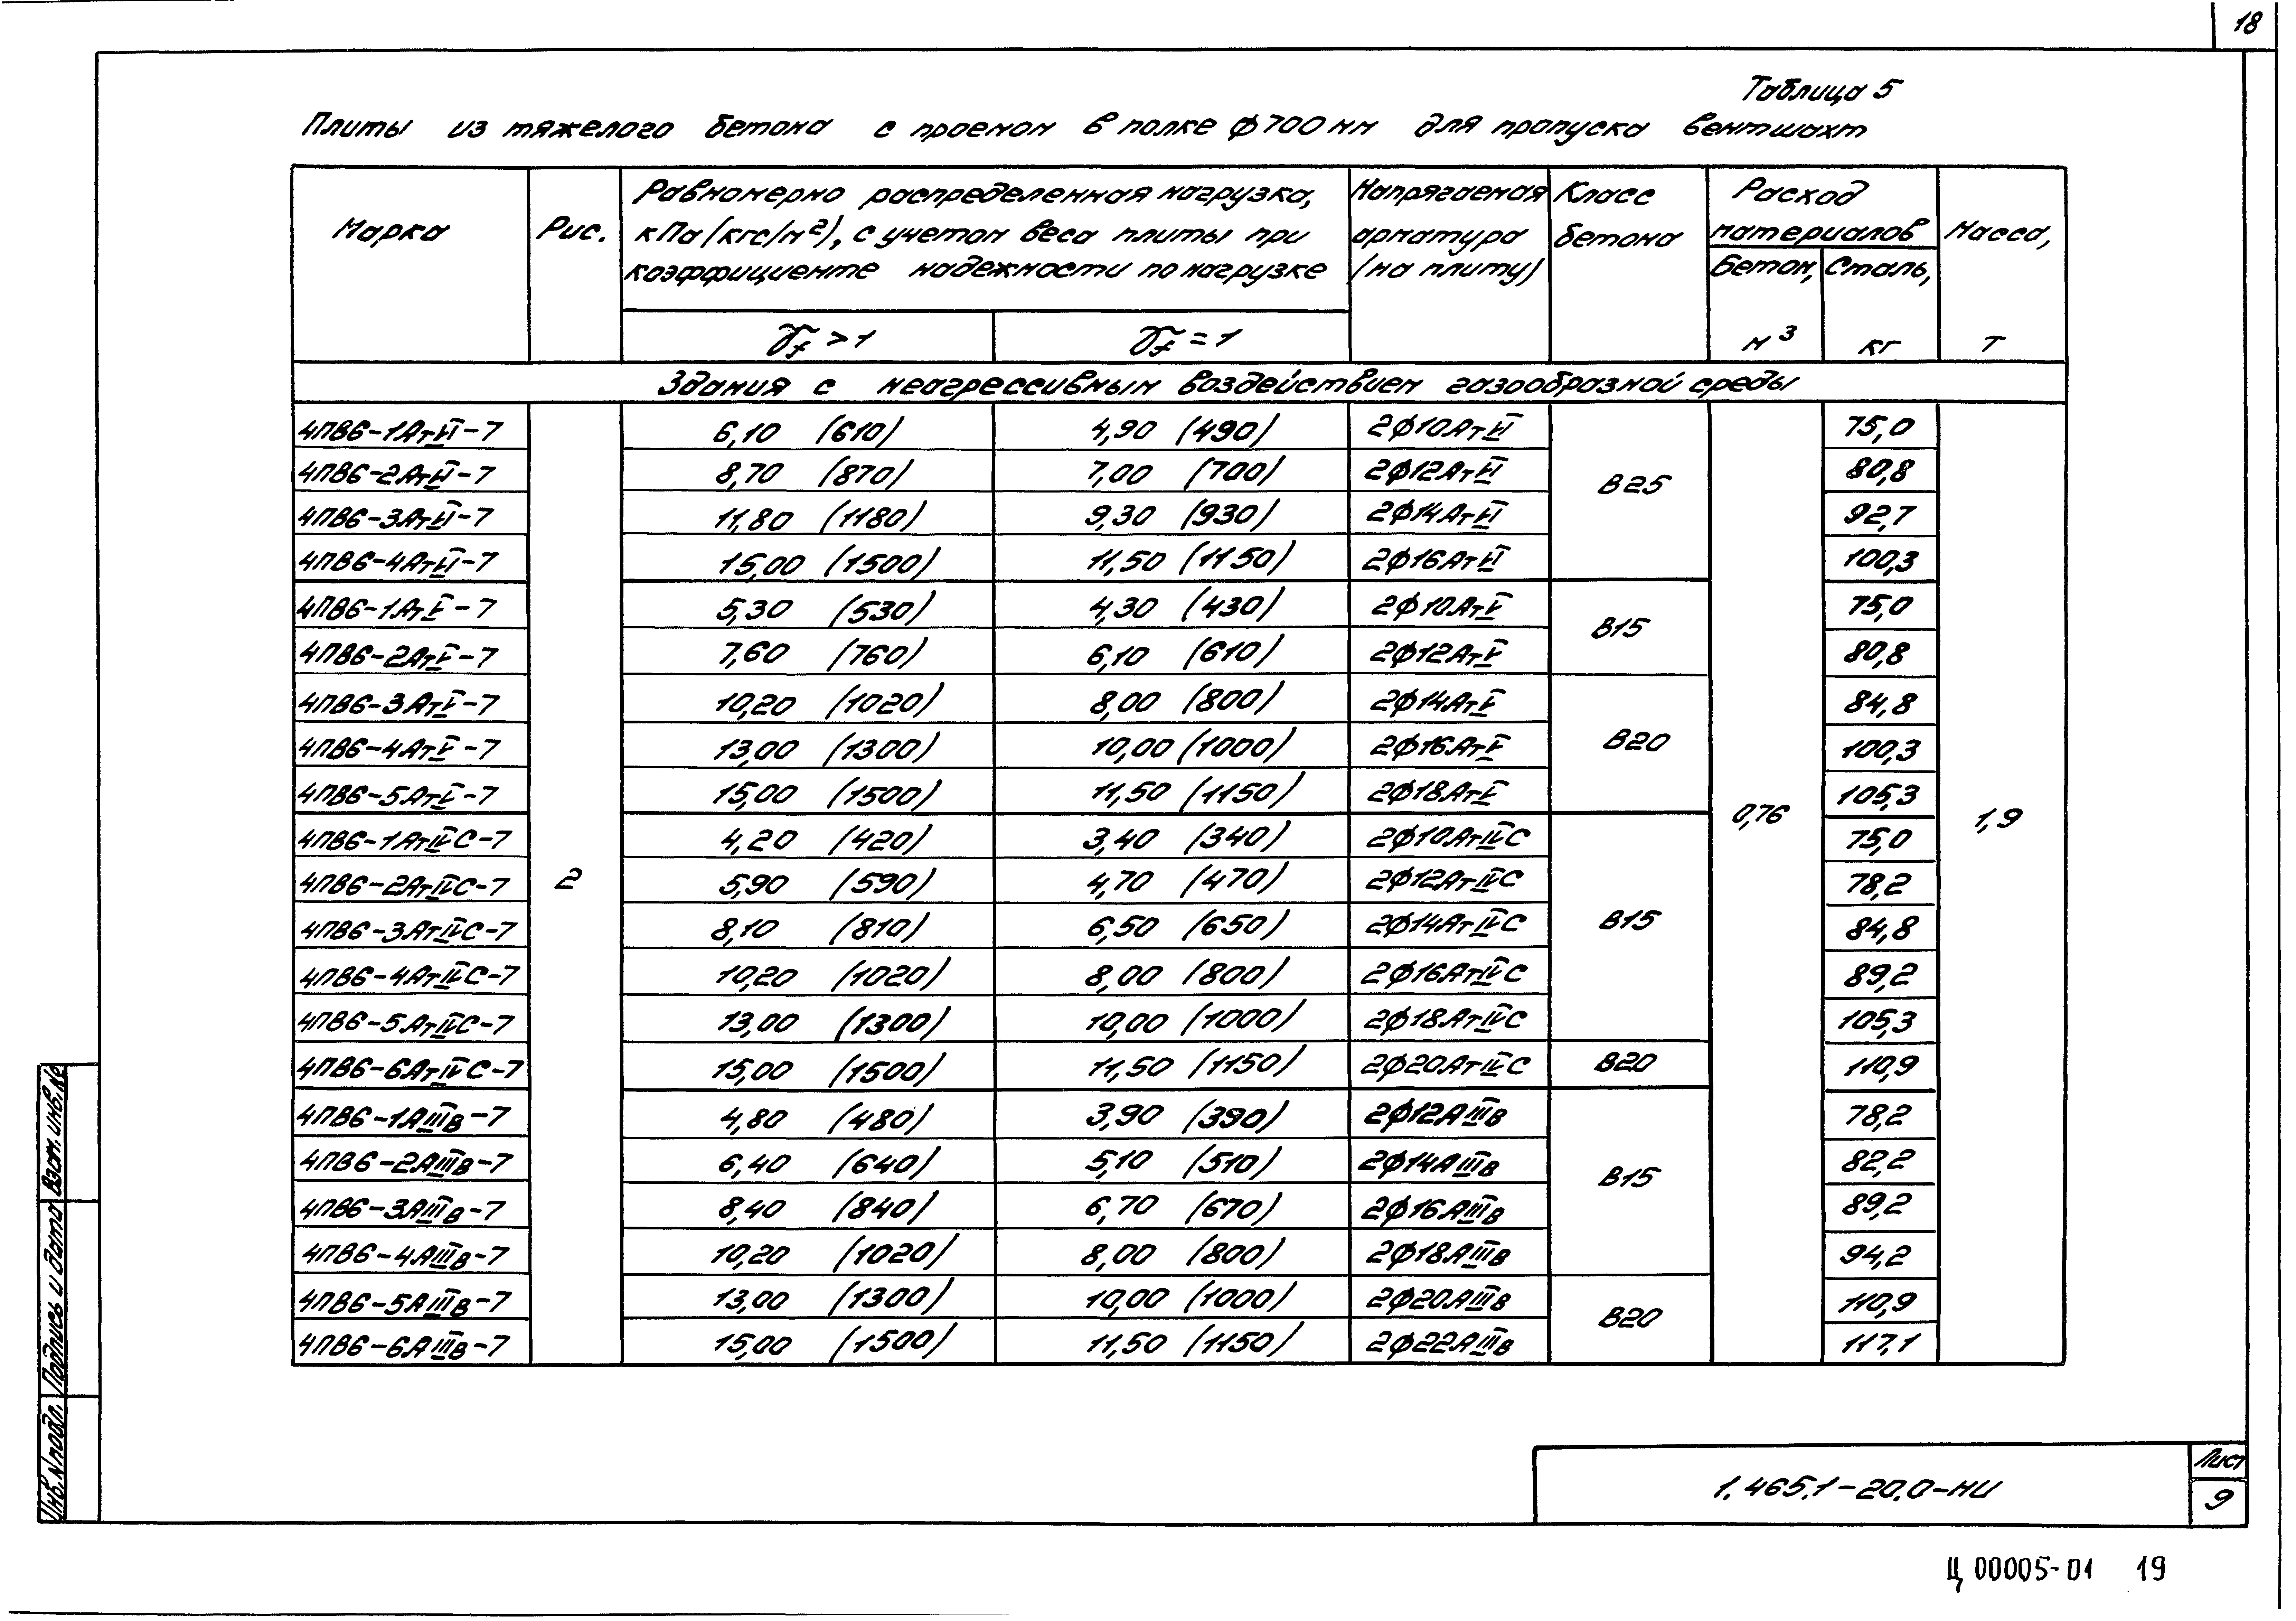 18
Таблица 5
Плиты из тяжелого бетона с проемом в полке ϕ700мм для пропуска вентшахт
Марка | Рис. | Равномерно распределенная нагрузка, кПа (кгс/м²), с учетом веса плиты при коэффициенте надежности по нагрузке | Напрягаемая арматура (на плиту) | Класс бетона | Расход материалов | Масса, т
γf > 1 | γf = 1 | Бетон, м³ | Сталь, кг
Здания с неагрессивным воздействием газообразной среды
4ПВ6-1АтVI-7 | 6,10 (610) | 4,90 (490) | 2ϕ10АтVI | 75,0
4ПВ6-2АтVI-7 | 8,70 (870) | 7,00 (700) | 2ϕ12АтVI | В25 | 80,8
4ПВ6-3АтVI-7 | 11,80 (1180) | 9,30 (930) | 2ϕ14АтVI | 92,7
4ПВ6-4АтVI-7 | 15,00 (1500) | 11,50 (1150) | 2ϕ16АтVI | 100,3
4ПВ6-1АтV-7 | 5,30 (530) | 4,30 (430) | 2ϕ10АтV | В15 | 75,0
4ПВ6-2АтV-7 | 7,60 (760) | 6,10 (610) | 2ϕ12АтV | 80,8
4ПВ6-3АтV-7 | 10,20 (1020) | 8,00 (800) | 2ϕ14АтV | 84,8
4ПВ6-4АтV-7 | 13,00 (1300) | 10,00 (1000) | 2ϕ16АтV | В20 | 100,3
4ПВ6-5АтV-7 | 15,00 (1500) | 11,50 (1150) | 2ϕ18АтV | 0,76 | 105,3 | 1,9
4ПВ6-1АтIVС-7 | 4,20 (420) | 3,40 (340) | 2ϕ10АтIVС | 75,0
4ПВ6-2АтIVС-7 | 2 | 5,90 (590) | 4,70 (470) | 2ϕ12АтIVС | 78,2
4ПВ6-3АтIVС-7 | 8,10 (810) | 6,50 (650) | 2ϕ14АтIVС | В15 | 84,8
4ПВ6-4АтIVС-7 | 10,20 (1020) | 8,00 (800) | 2ϕ16АтIVС | 89,2
4ПВ6-5АтIVС-7 | 13,00 (1300) | 10,00 (1000) | 2ϕ18АтIVС | 105,3
4ПВ6-6АтIVС-7 | 15,00 (1500) | 11,50 (1150) | 2ϕ20АтIVС | В20 | 110,9
4ПВ6-1АIIIв-7 | 4,80 (480) | 3,90 (390) | 2ϕ12АIIIв | 78,2
4ПВ6-2АIIIв-7 | 6,40 (640) | 5,10 (510) | 2ϕ14АIIIв | В15 | 82,2
4ПВ6-3АIIIв-7 | 8,40 (840) | 6,70 (670) | 2ϕ16АIIIв | 89,2
4ПВ6-4АIIIв-7 | 10,20 (1020) | 8,00 (800) | 2ϕ18АIIIв | 94,2
4ПВ6-5АIIIв-7 | 13,00 (1300) | 10,00 (1000) | 2ϕ20АIIIв | В20 | 110,9
4ПВ6-6АIIIв-7 | 15,00 (1500) | 11,50 (1150) | 2ϕ22АIIIв | 117,1
Инв.N подл. Подпись и дата Взам. инв.№
1.465.1-20.0-НИ
Лист
9
Ц 00005-01 19